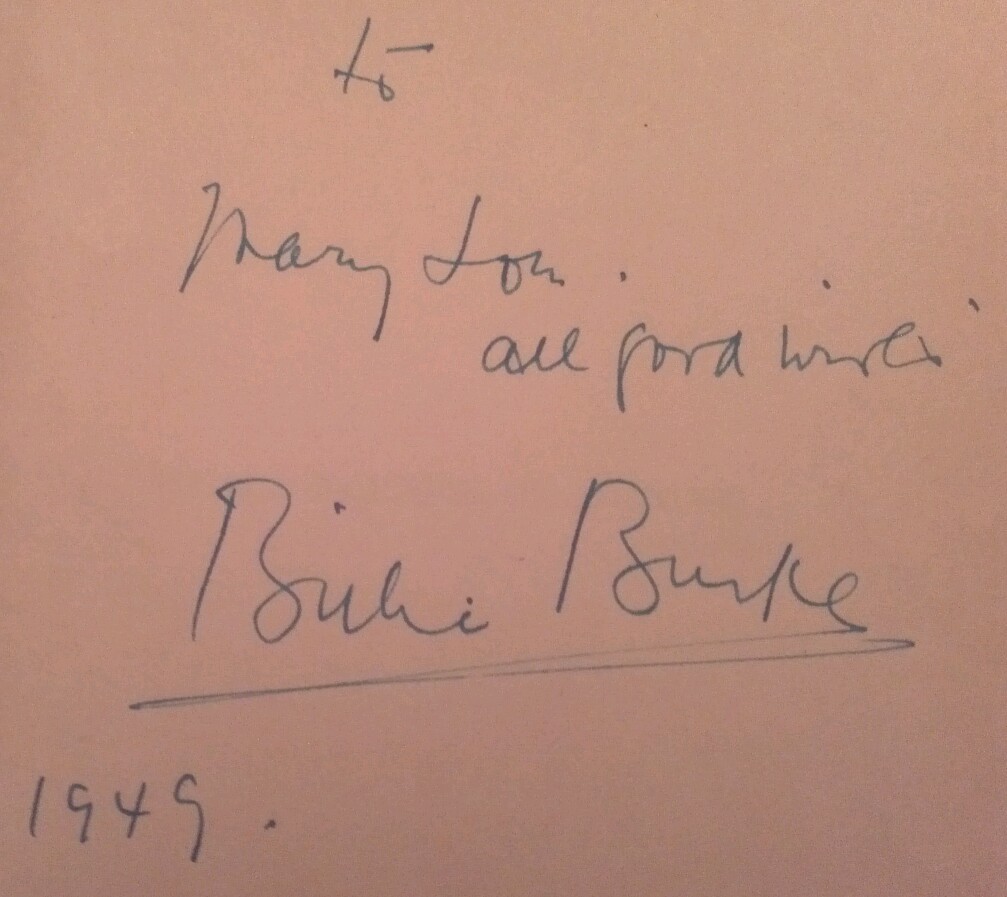 to
Mary Lou.
all good wishes
Billie Burke
1949.